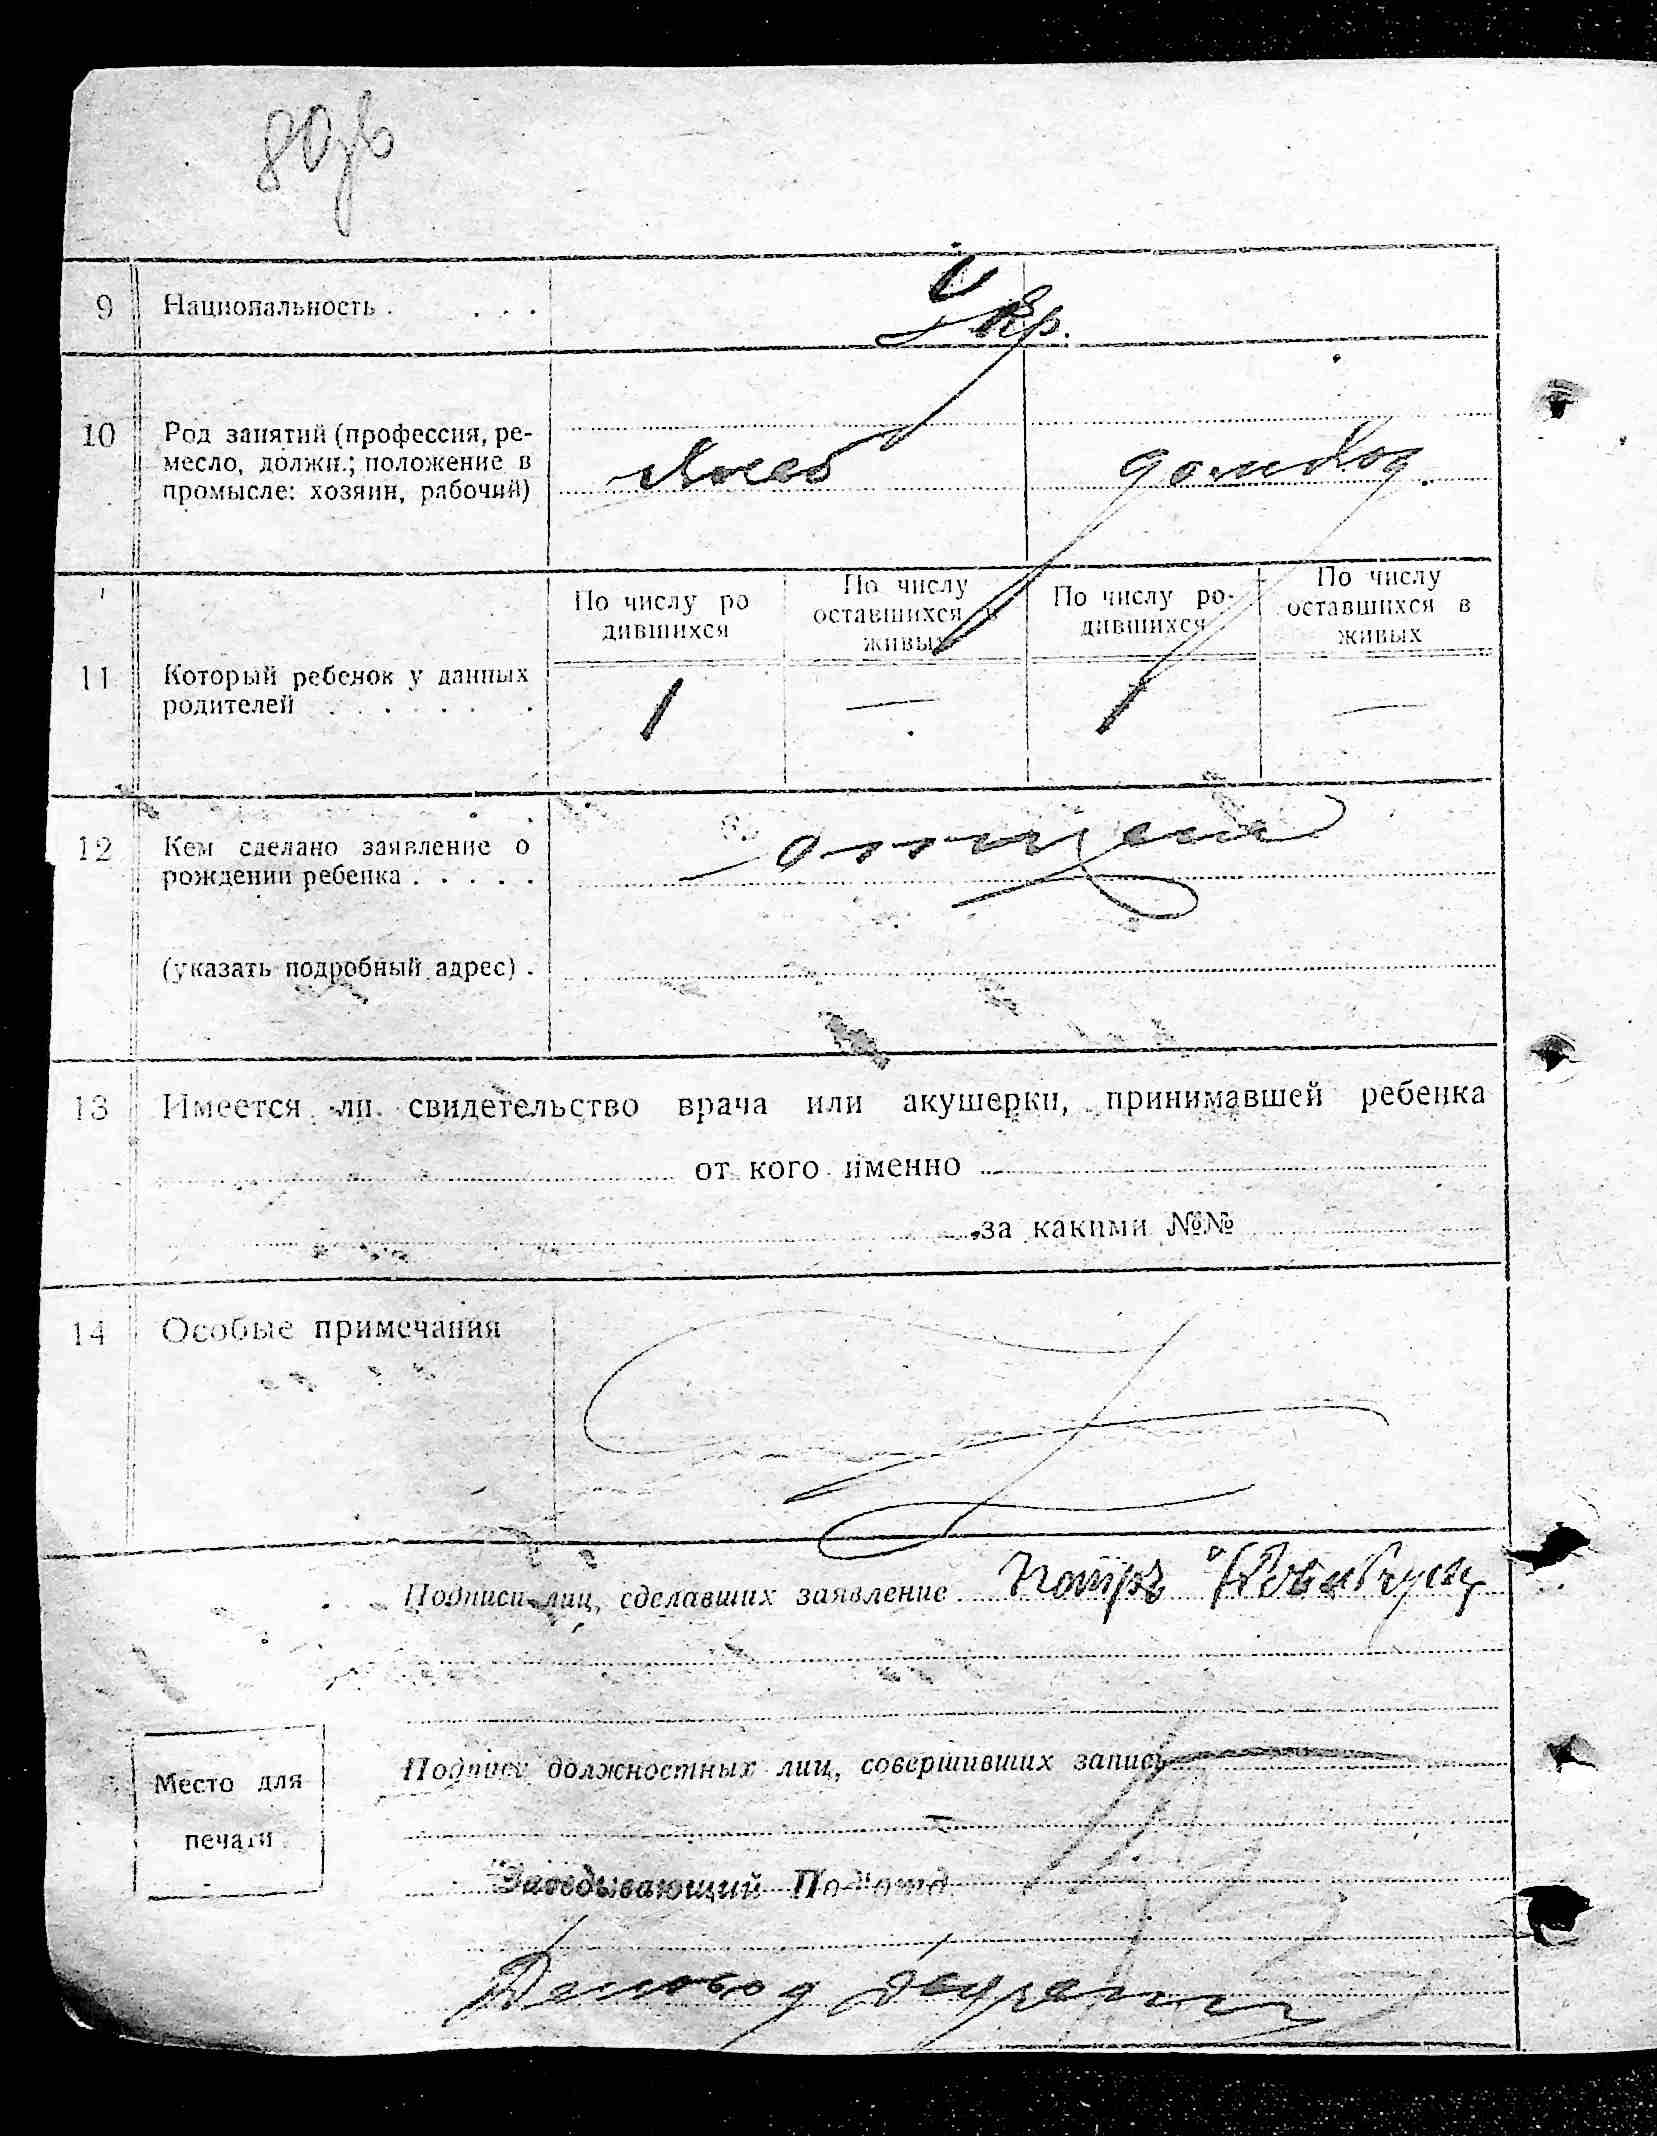 80
9 Национальность . . . .
Укр.
10 Род занятий (профессия, ре-
месло, должн.; положение в
промысле: хозяин, рабочий)
Хлеб домхоз.
По числу ро
дившихся
По числу
оставшихся в
живых
По числу ро-
дившихся
По числу
оставшихся в
живых
11 Который ребенок у данных
родителей . . . . . .
1 — 1 —
12 Кем сделано заявление о
рождении ребенка . . . . .
отцем
(указать подробный адрес) .
13 Имеется ли свидетельство врача или акушерки, принимавшей ребенка
от кого именно
за какими №№
14 Особые примечания
Подписи лиц, сделавших заявление Петръ
Подписи должностных лиц, совершивших запись
Место для
печати
Заведывающий Под'отд.
Деловод